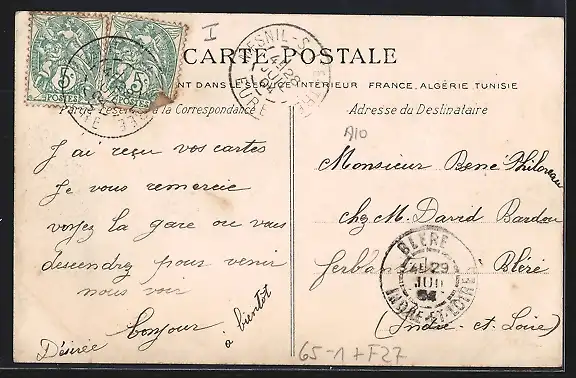 I
CARTE POSTALE
NT DANS LE SERVICE INTÉRIEUR FRANCE, ALGÉRIE TUNISIE
à la Correspondance
Adresse du Destinataire
5c 5c
POSTES
MESNIL-S
28
EURE
A10
J'ai reçu vos cartes
Je vous remercie
voyez la gare ou vous
descendrez pour venir
nous voir
bonjour
à bientôt
Désirée
Monsieur Bene Philoreau
chez M. David Bardou
Blèré
(Indre-et-Loire)
BLÉRÉ
29
INDRE-ET-LOIRE
65-1+F27